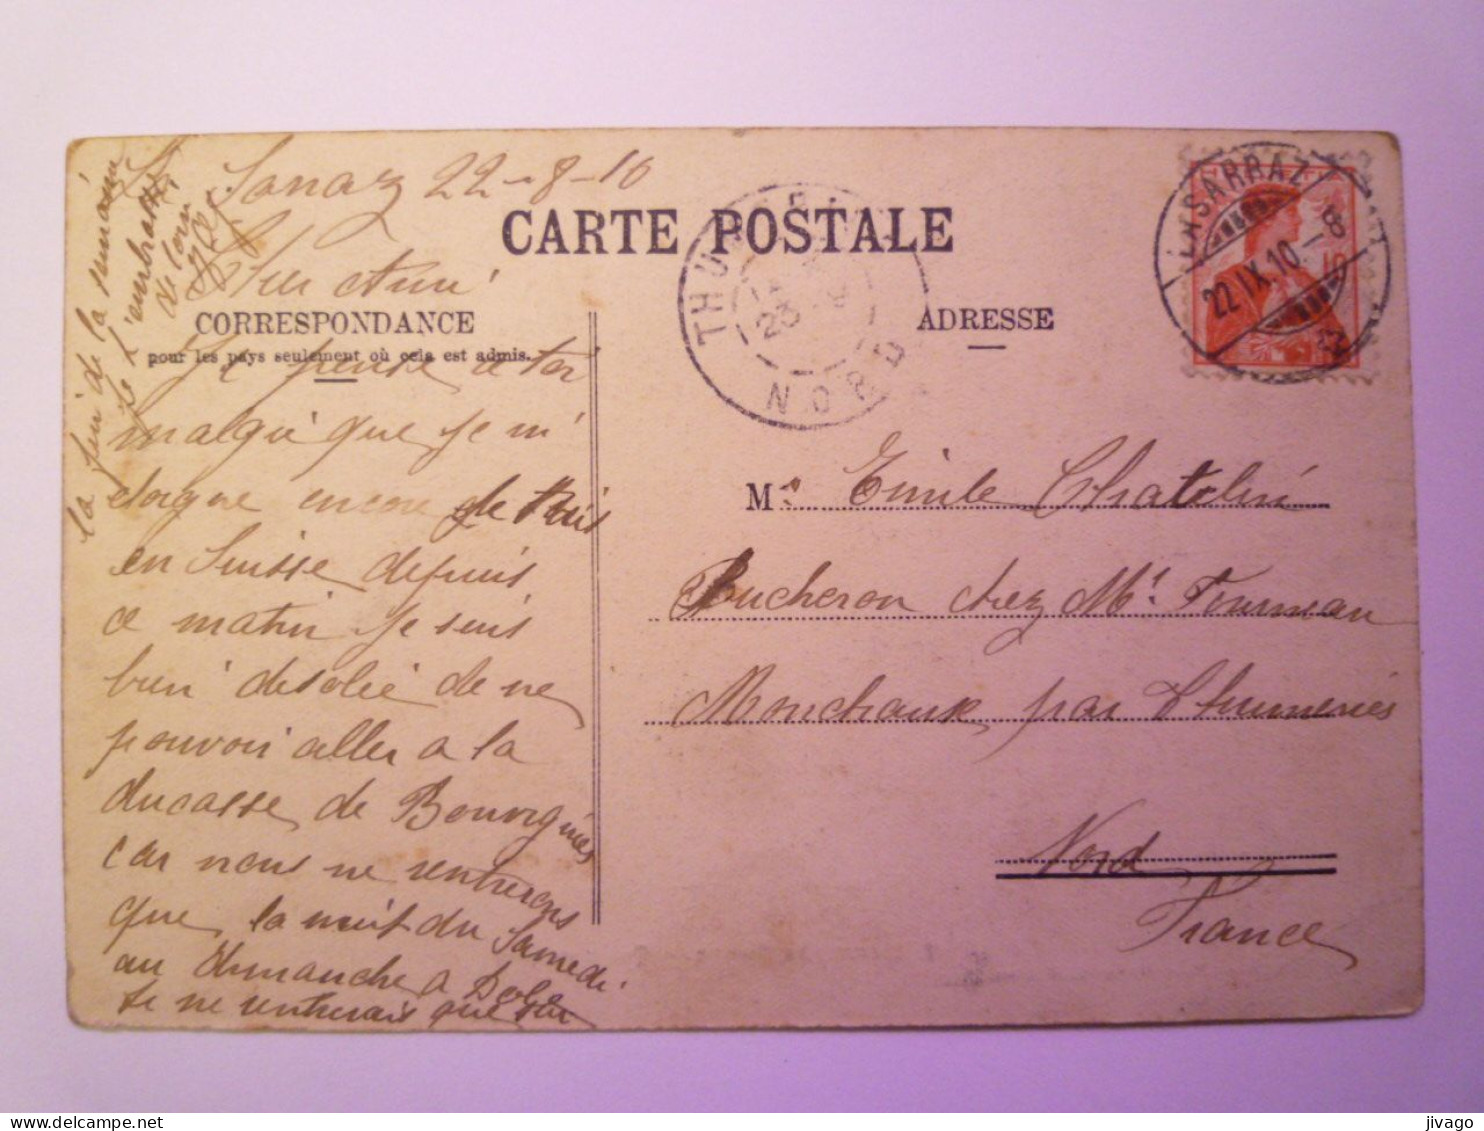 Sarraz 22-8-10
CARTE POSTALE
CORRESPONDANCE
pour les pays seulement où cela est admis.
ADRESSE
LASARRAZ
22.IX.10.-8
10
THU
23
NORD
Cher Ami
Je pense a toi
malgré que je m'
eloigne encore je suis
en Suisse depuis
ce matin je suis
bien desolé de ne
pouvoir aller a la
ducasse de Bouvignies
car nous ne rentrerons
que la nuit du Samedi
au Dimanche a Dole
Je ne rentrerais que sur
la fin de la semaine
Je t'embrasse
de loin
M. Emile Chatelin
Bucheron chez Mr Fourneau
Monchaux par Thumeries
Nord
France
jivago